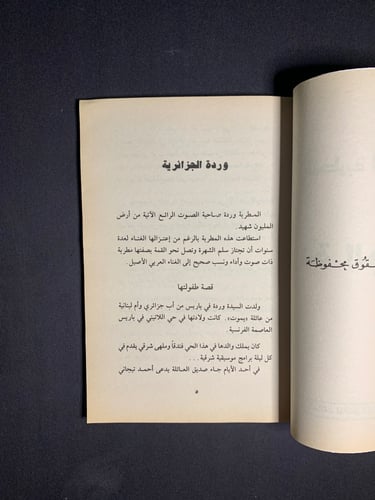 وردة الجزائرية
المطربة وردة صاحبة الصوت الرائع الآتية من أرض
المليون شهيد.
استطاعت هذه المطربة بالرغم من إعتزالها الغناء لعدة
سنوات أن تجتاز سلم الشهرة وتصل نحو القمة بصفتها مطربة
ذات صوت وأداء ونسب صحيح إلى الغناء العربي الأصيل.
قصة طفولتها
ولدت السيدة وردة في باريس من أب جزائري وأم لبنانية
من عائلة «يموت». كانت ولادتها في حي اللاتيني في باريس
العاصمة الفرنسية.
كان يملك والدها في هذا الحي فندقاً وملهى شرقي يقدم في
كل ليلة برامج موسيقية شرقية...
في أحد الأيام جاء صديق العائلة يدعى أحمد تيجاني
٥
قوق محفوظة